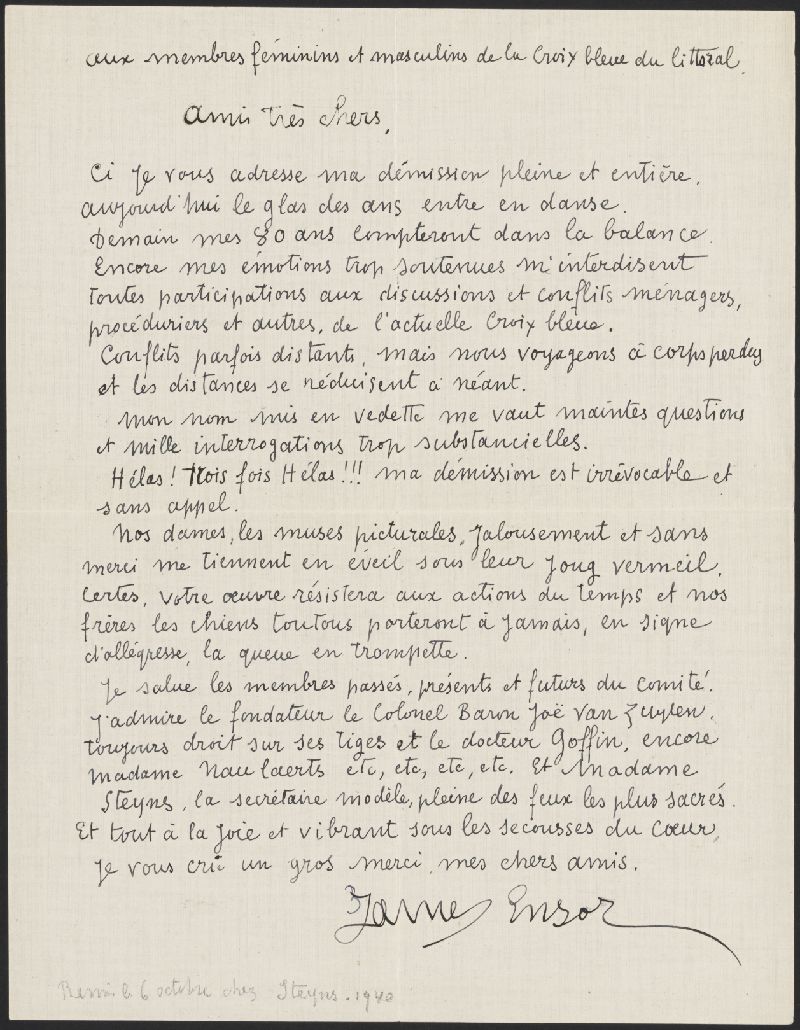 aux membres féminins et masculins de la Croix bleue du littoral.
Amis très chers,
Ci je vous adresse ma démission pleine et entière.
aujourd'hui le glas des ans entre en danse.
Demain mes 80 ans compteront dans la balance.
Encore mes émotions trop soutenues m'interdisent
toutes participations aux discussions et conflits ménagers,
procéduriers et autres, de l'actuelle Croix bleue.
Conflits parfois distants, mais nous voyageons à corps perdus
et les distances se réduisent à néant.
Mon nom mis en vedette me vaut maintes questions
et mille interrogations trop substancielles.
Hélas! trois fois Hélas!!! ma démission est irrévocable et
sans appel.
Nos dames, les muses picturales, jalousement et sans
merci me tiennent en éveil sous leur joug vermeil.
Certes, votre œuvre résistera aux actions du temps et nos
frères les chiens toutous porteront à jamais, en signe
d'allégresse, la queue en trompette.
Je salue les membres passés, présents et futurs du comité.
J'admire le fondateur le Colonel Baron Joë Van Zuylen,
toujours droit sur ses tiges et le docteur Goffin, encore
madame Naulaerts etc, etc, etc, etc. Et Madame
Steyns, la secrétaire modèle, pleine des feux les plus sacrés.
Et tout à la joie et vibrant sous les secousses du cœur,
je vous crie un gros merci, mes chers amis.
James Ensor
Remis le 6 octobre chez Steyns. 1940